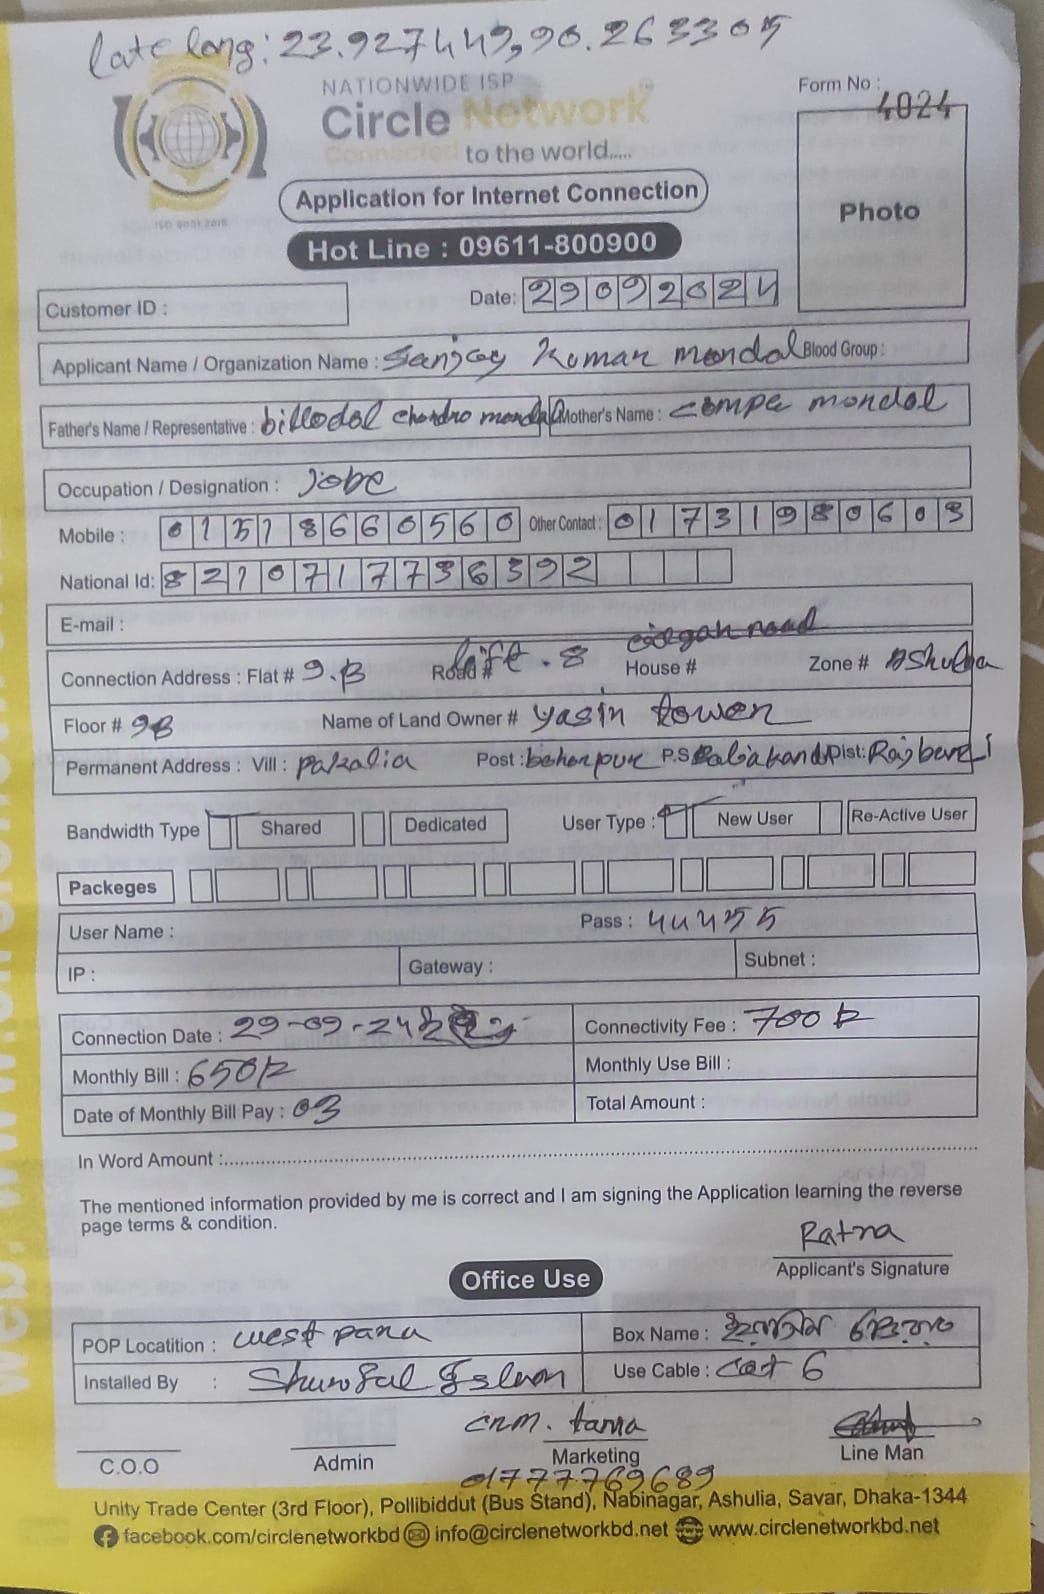 late long: 23.927449,90.263305
NATIONWIDE ISP
Circle Network
Connected to the world.....
ISO 9001:2015
Form No : 4024
Photo
Application for Internet Connection
Hot Line : 09611-800900
Customer ID :
Date: 29092024
Applicant Name / Organization Name : Sanjoy Kumar mondal Blood Group :
Father's Name / Representative : chondro mondal Mother's Name : compa mondal
Occupation / Designation : Jobe
Mobile : 01518660560 Other Contact : 01731980603
National Id: 8210717736392
E-mail :
eidgah road
Connection Address : Flat # 9.B Road # lift . 8 House # Zone # AShulia
Floor # 9B Name of Land Owner # yasin tower
Permanent Address : Vill : pakalia Post : P.S Baliakandi Dist: Rajbari
Bandwidth Type Shared Dedicated User Type : New User Re-Active User
Packeges
User Name : Pass : 44455
IP : Gateway : Subnet :
Connection Date : 29-09-24 Connectivity Fee : 700 tk
Monthly Bill : 650tk Monthly Use Bill :
Date of Monthly Bill Pay : 03 Total Amount :
In Word Amount :
The mentioned information provided by me is correct and I am signing the Application learning the reverse
page terms & condition.
Ratna
Applicant's Signature
Office Use
POP Locatition : west para Box Name :
Installed By : Use Cable : Cat 6
C.O.O Admin Marketing Line Man
01777769689
Unity Trade Center (3rd Floor), Pollibiddut (Bus Stand), Nabinagar, Ashulia, Savar, Dhaka-1344
facebook.com/circlenetworkbd info@circlenetworkbd.net www.circlenetworkbd.net